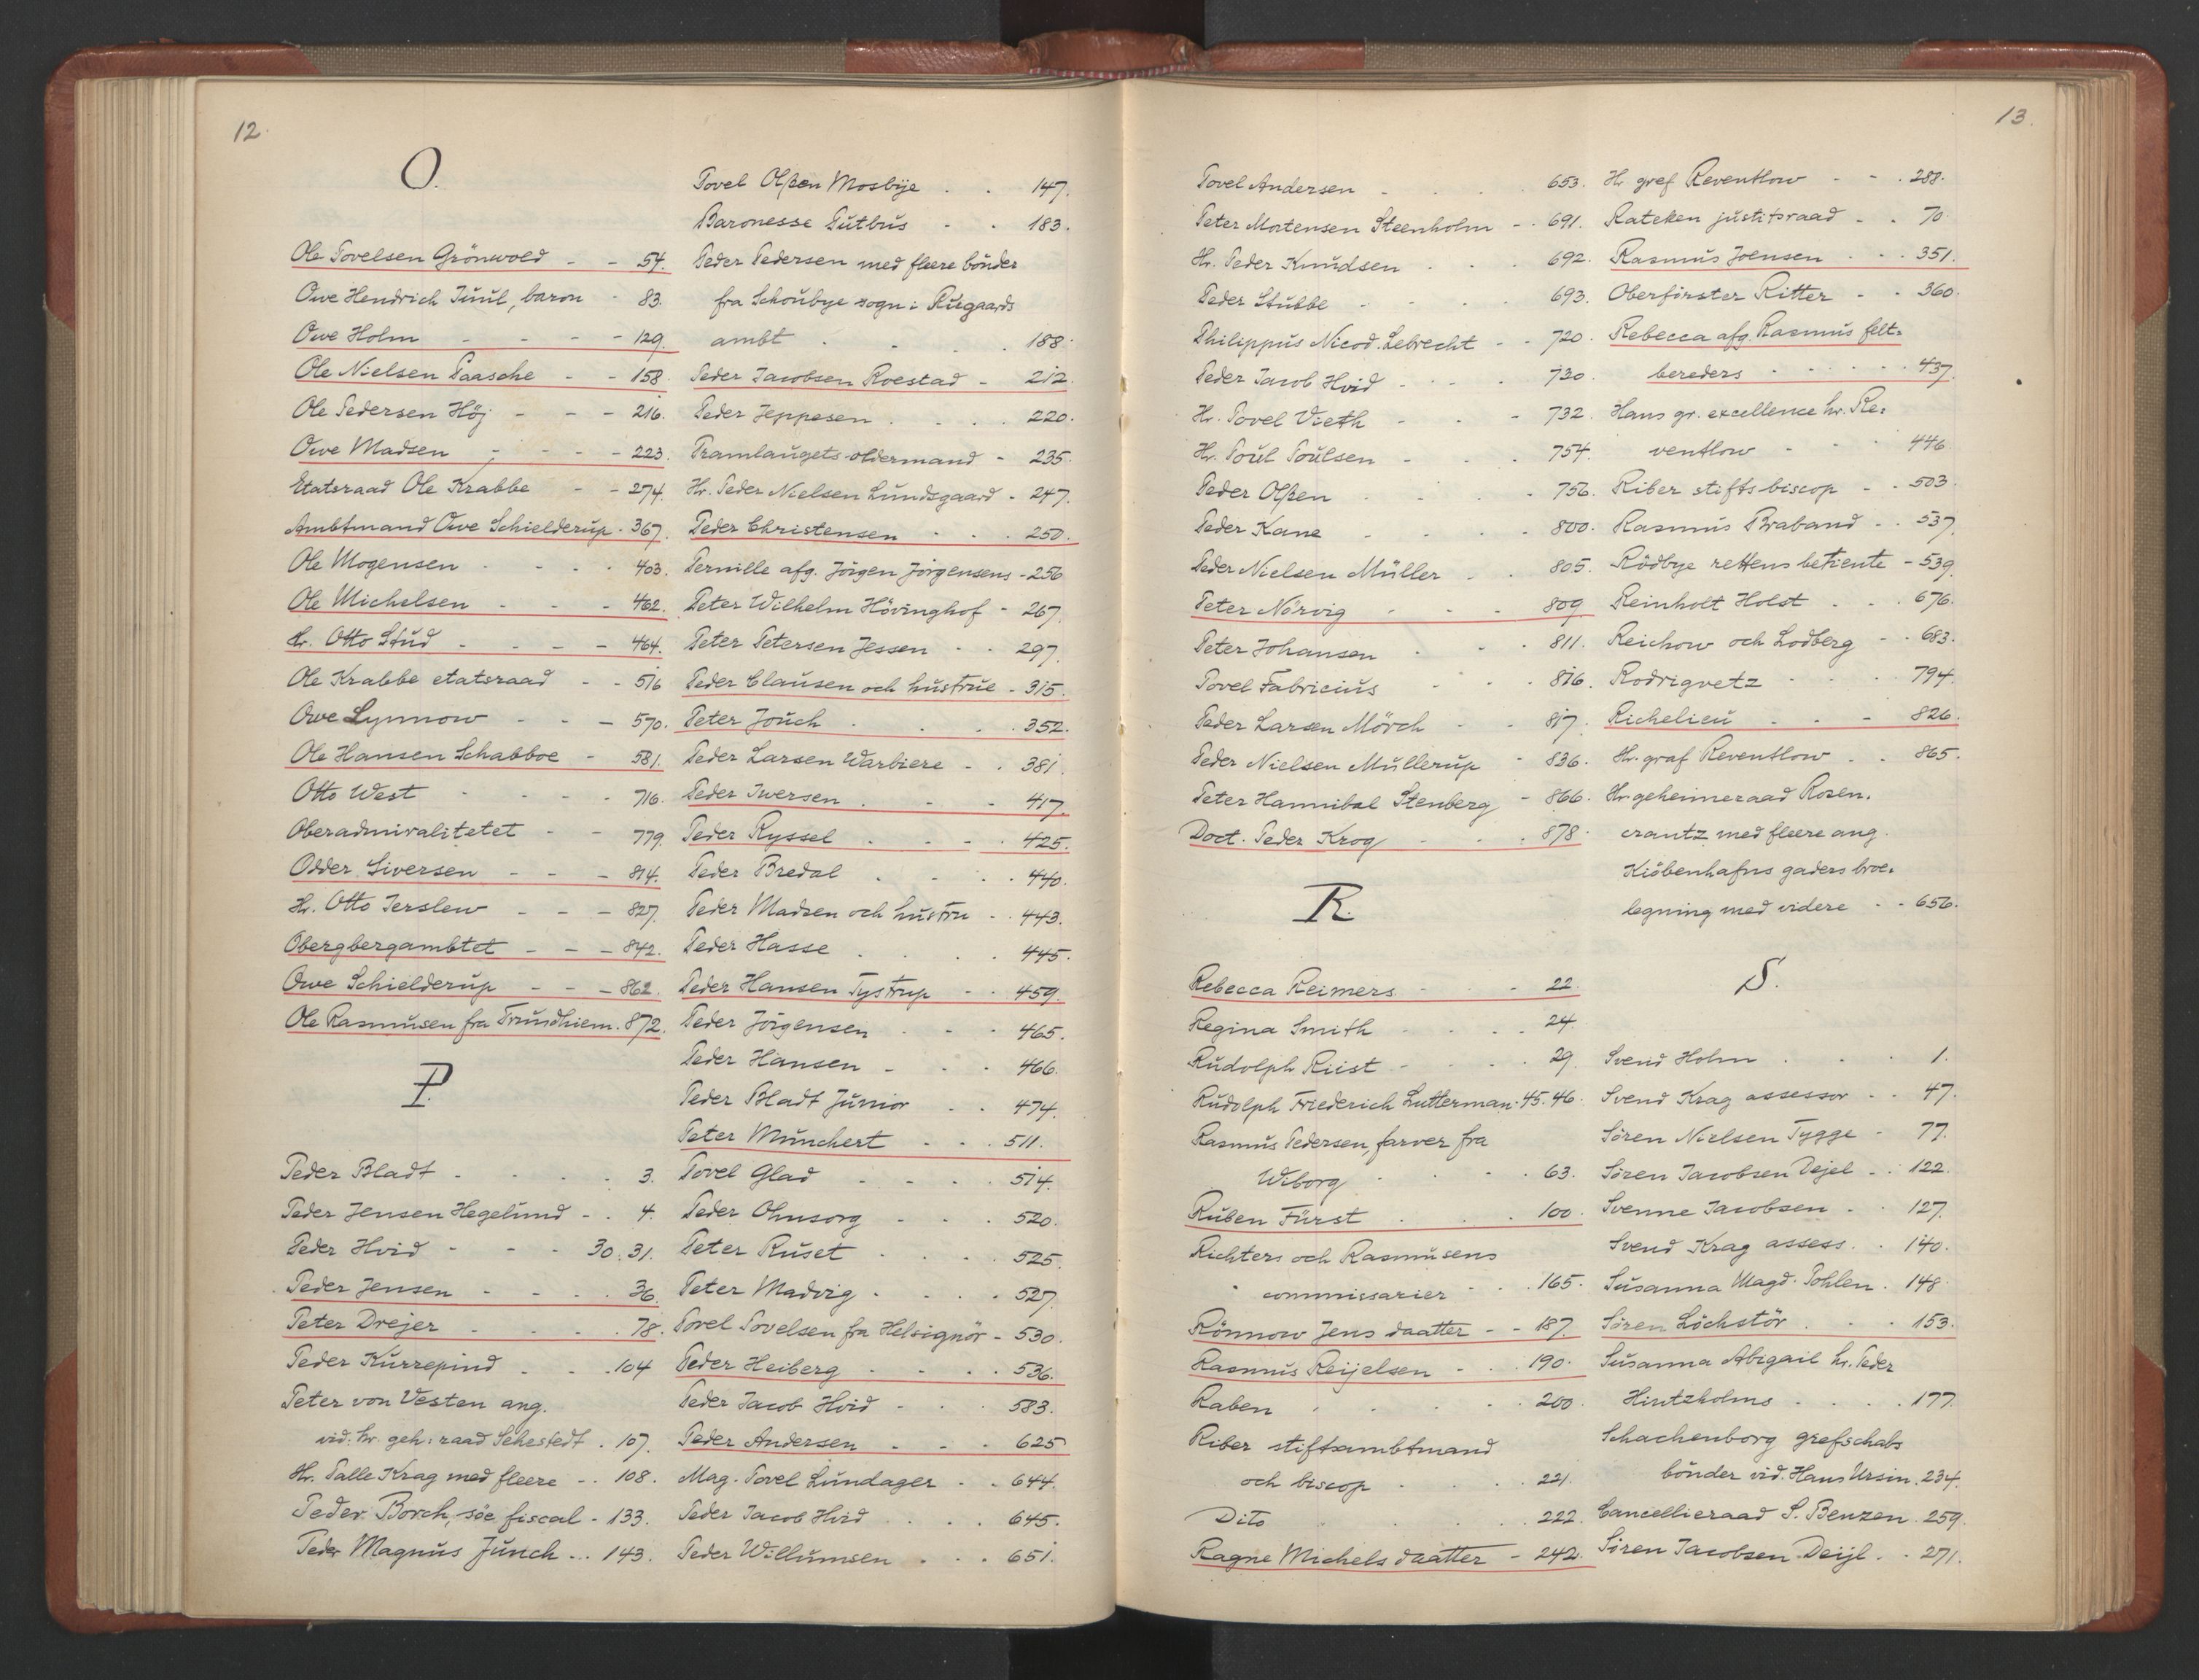 12.
O.
Ole Povelsen Grönwold - - 54.
Owe Hendrich Juul, baron - 83.
Owe Holm - - - - 129.
Ole Nielsen Paasche - - 158.
Ole Pedersen Höj - - - 216.
Owe Madsen - - - - 223.
Etatsraad Ole Krabbe - - 274.
Ambtmand Owe Schielderup - 367.
Ole Mogensen - - - - 403.
Ole Michelsen - - - 462.
Hr. Otto Stud - - - - 464.
Ole Krabbe etatsraad - - 516
Owe Lynnow - - - 570.
Ole Hansen Schabboe - 581.
Otto West - - - - 716.
Oberadmiralitetet - - 779.
Odder Siversen - - - 814.
Hr. Otto Jerslew - - - 827.
Obergbergambtet - - - 842.
Owe Schielderup - - - 862.
Ole Rasmusen fra Trundhiem. 872.
P.
Peder Bladt - - - - 3.
Peder Jensen Hegelund - . 4.
Peder Hvid - - - 30. 31.
Peder Jensen - - - . 36.
Peter Drejer - - - . 78.
Peder Kurrepind - - . 104
Peter von Vesten ang.
vid. hr. geh: raad Sehestedt . 107.
Hr. Palle Krag med fleere - . 108.
Peder Borch, söe fiscal - 133.
Peder Magnus Junch ... 143.
Povel Olßen Mosbÿe . . 147.
Baronesse Putbus - . 183.
Peder Pedersen med fleere bönder
fra Schoubye sogn i Rugaards
ambt . - . . 188.
Peder Jacobsen Roestad - 212.
Peder Jeppesen . . . . 220.
Pramlaugets oldermand - 235.
Hr. Peder Nielsen Lundsgaard - 247.
Peder Christensen - - . 250.
Pernille afg. Jörgen Jörgensens - 256
Peter Wilhelm Hövinghof - 267.
Peter Petersen Jessen - . 297.
Peder Clausen och hustrue - 315.
Peter Jouch . . . . 352.
Peder Larsen Warbiere - . 381.
Peder Iwersen . - - 417.
Peder Ryssel . - - . 425.
Peder Bredal . . . . 440.
Peder Madsen och hustru - . 443.
Peder Hasse . . . . 445.
Peder Hansen Tystrup - . 459.
Peder Jörgensen . - - 465.
Peder Hansen - . . 466.
Peder Bladt Junior . . 474.
Peter Munchert - - . 511.
Povel Glad - - . . 514.
Peder Ohnsorg - - . 520.
Peter Ruset - . . 525.
Peter Madvig - . . . 527.
Povel Povelsen fra Helsignör - 530.
Peder Heiberg - - . . 536.
Peder Jacob Hvid - . . 583.
Peder Andersen - - - 625
Mag. Povel Lundager - . 644.
Peder Jacob Hvid . . . 645.
Peder Willumsen . . . 651.
13.
Povel Andersen - . . . 653.
Peter Mortensen Steenholm - . 691.
Hr. Peder Knudsen . . . 692.
Peder Stubbe - . . . 693.
Philippus Nicod. Lebrecht - - 720.
Peder Jacob Hvid - - - 730.
Hr. Povel Vieth - - - 732.
Hr. Poul Poulsen - - . 754.
Peder Olßen - . . - 756.
Peder Kane - . . - 800.
Peder Nielsen Müller . . 805.
Peter Nörvig - - - 809.
Peter Johansen - - . 811.
Povel Fabricius - - - 816.
Peder Larsen Mörch - - 817.
Peder Nielsen Mullerup - 836.
Peter Hannibal Stenberg - 866.
Doct. Peder Krog - - . 878.
R.
Rebecca Reimers - - - 22.
Regina Smith - - . . 24.
Rudolph Riist - - - . 29.
Rudolph Friederich Lutterman. 45. 46.
Rasmus Pedersen, farver fra
Wiborg - . . . 63.
Ruben Fürst . . . 100.
Richters och Rasmusens
commissarier - . . 165.
Rönnow Jens daatter - - 187.
Rasmus Reijelsen - . . 190.
Raben . . . . . 200.
Riber stiftsambtmand
och biscop - . . . 221.
Dito . . . . 222.
Ragne Michels daatter - 242.
Hr gref Reventlow - - . 288.
Rateken justitsraad - . 70
Rasmus Joensen . - . 351.
Oberförster Ritter - - 360.
Rebecca afg. Rasmus felt-
bereders . . . . . 437.
Hans gr. excellence hr. Re-
ventlow - - . 446
Riber stifts biscop - . 503.
Rasmus Braband - . 537.
Rödbye rettens betiente - 539.
Reinholt Holst . . . 676.
Reichow och Lodberg - . 683.
Rodrigvetz - . . . 794.
Richelieu . - - 826.
Hr. graf Reventlow . . 865.
Hr. geheimeraad Rosen-
crantz med fleere ang.
Kiöbenhafns gaders broe-
legning med videre - . 656.
S.
Svend Holm . . . 1.
Svend Krag assessor - . 47.
Sören Nielsen Tygge - 77.
Sören Jacobsen Dejel - . 122.
Svenne Jacobsen - . 127.
Svend Krag assess. . 140.
Susanna Magd. Pohlen . 148.
Sören Löchstör . . . 153.
Susanna Abigail hr. Peder
Hintzholms . . . . 177.
Schachenborg grefschabs
bönder vid. Hans Ursin. 234.
Cancellieraad S. Benzen. 259.
Sören Jacobsen Deijl . . 271.